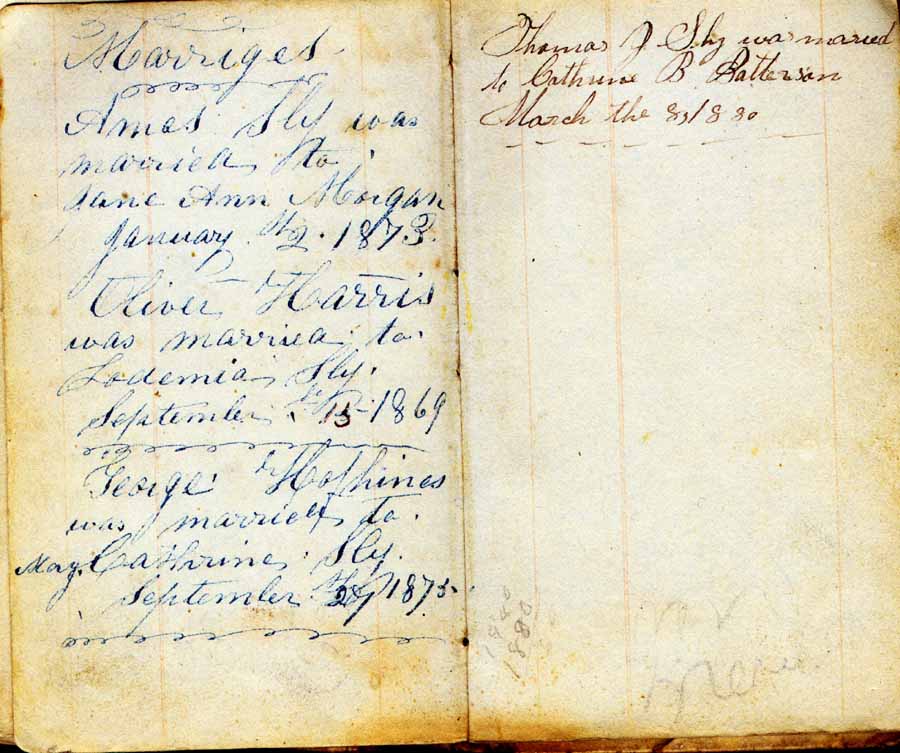 Marriges
Amos Sly was
married to
Jane Ann Morgan
January 2. 1873.
Oliver Harris
was married to
Lodemia Sly.
September 15 1869
George Hopkines
was married to.
May. Cathrine Sly.
September 28 1875.
Thomas J Sly was maried
to Cathrine B Patterson
March the 8, 1880
1880
1880